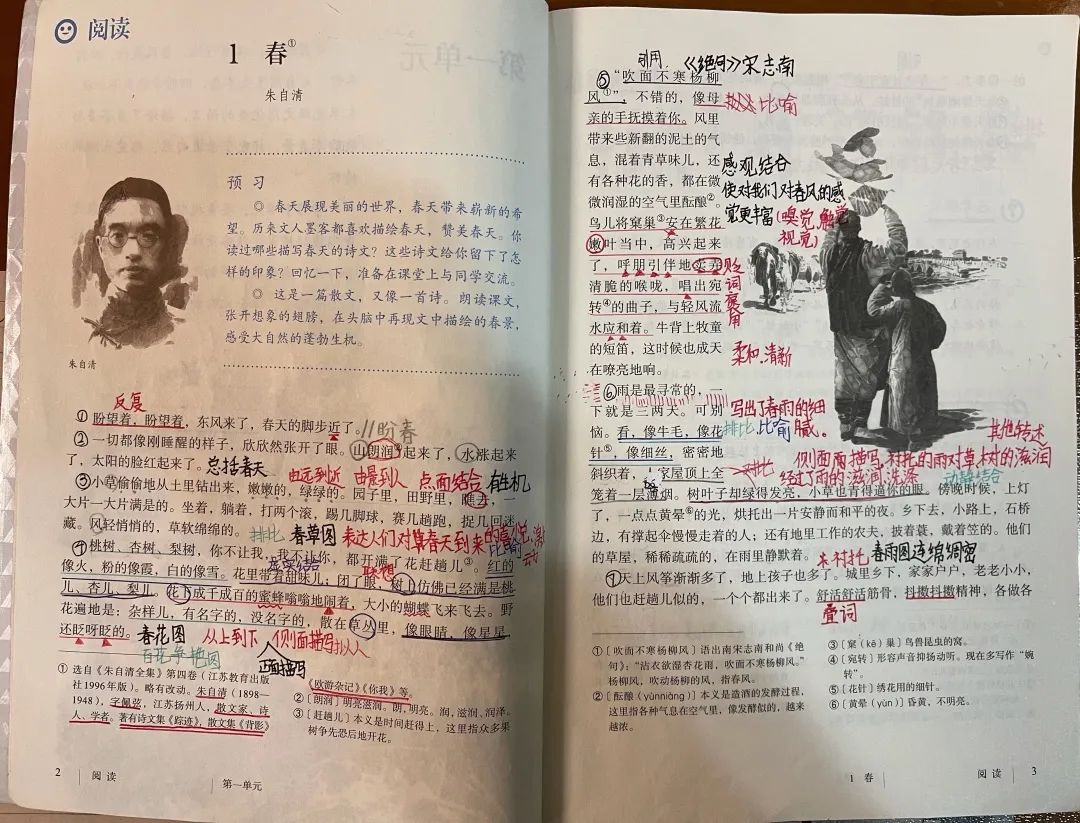 阅读
1 春①
朱自清
预习
◎ 春天展现美丽的世界，春天带来崭新的希
望。历来文人墨客都喜欢描绘春天，赞美春天。你
读过哪些描写春天的诗文？这些诗文给你留下了怎
样的印象？回忆一下，准备在课堂上与同学交流。
◎ 这是一篇散文，又像一首诗。朗读课文，
张开想象的翅膀，在头脑中再现文中描绘的春景，
感受大自然的蓬勃生机。
朱自清
反复
①盼望着，盼望着，东风来了，春天的脚步近了。//盼春
②一切都像刚睡醒的样子，欣欣然张开了眼。山朗润②起来了，水涨起来
了，太阳的脸红起来了。总括春天 由远到近 由景到人 点面结合 有生机
③小草偷偷地从土里钻出来，嫩嫩的，绿绿的。园子里，田野里，瞧去，一
大片一大片满是的。坐着，躺着，打两个滚，踢几脚球，赛几趟跑，捉几回迷
藏。风轻悄悄的，草软绵绵的。排比 春草图 表达人们对春天到来的喜悦
④桃树、杏树、梨树，你不让我，我不让你，都开满了花赶趟儿③。红的
像火，粉的像霞，白的像雪。花里带着甜味儿；闭了眼，树上仿佛已经满是桃
儿、杏儿、梨儿。花下成千成百的蜜蜂嗡嗡地闹着，大小的蝴蝶飞来飞去。野
花遍地是：杂样儿，有名字的，没名字的，散在草丛里，像眼睛，像星星，
还眨呀眨的。春花图 从上到下 侧面描写
百花争艳图 正面描写
①〔选自《朱自清全集》第四卷（江苏教育出版
社1996年版）。略有改动。朱自清（1898—
1948），字佩弦，江苏扬州人，散文家、诗
人、学者。著有诗文集《踪迹》，散文集《背影》
《欧游杂记》《你我》等。
②〔朗润〕明亮滋润。朗，明亮。润，滋润、润泽。
③〔赶趟儿〕本义是时间赶得上，这里指众多果
树争先恐后地开花。
2 阅读 第一单元
引用 《绝句》宋志南
⑤“吹面不寒杨柳
风①”，不错的，像母 比喻
亲的手抚摸着你。风里
带来些新翻的泥土的气
息，混着青草味儿，还
有各种花的香，都在微
微润湿的空气里酝酿②。
感观结合
使对我们对春风的感
觉更丰富(嗅觉 触觉
视觉)
鸟儿将窠巢③安在繁花
嫩叶当中，高兴起来
了，呼朋引伴地卖弄
清脆的喉咙，唱出宛
转④的曲子，与轻风流
水应和着。牛背上牧童
的短笛，这时候也成天
在嘹亮地响。
贬词褒用
柔和 清新
⑥雨是最寻常的，一
下就是三两天。可别
恼。看，像牛毛，像花
针⑤，像细丝，密密地
斜织着，人家屋顶上全
写出了春雨的细
排比 比喻 腻。
对比
侧面描写，衬托的雨对草、树的滋润
经过了雨的滋润、洗涤 动静结合
笼着一层薄烟。树叶子却绿得发亮，小草也青得逼你的眼。傍晚时候，上灯
了，一点点黄晕⑥的光，烘托出一片安静而和平的夜。乡下去，小路上，石桥
边，有撑起伞慢慢走着的人；还有地里工作的农夫，披着蓑，戴着笠的。他们
的草屋，稀稀疏疏的，在雨里静默着。衬托 春雨图 连绵绸密
⑦天上风筝渐渐多了，地上孩子也多了。城里乡下，家家户户，老老小小，
他们也赶趟儿似的，一个个都出来了。舒活舒活筋骨，抖擞抖擞精神，各做各
叠词
①〔吹面不寒杨柳风〕语出南宋志南和尚《绝
句》：“沾衣欲湿杏花雨，吹面不寒杨柳风。”
杨柳风，吹动杨柳的风，指春风。
②〔酝酿（yùnniàng）〕本义是造酒的发酵过程，
这里指各种气息在空气里，像发酵似的，越来
越浓。
③〔窠（kē）巢〕鸟兽昆虫的窝。
④〔宛转〕形容声音抑扬动听。现在多写作“婉
转”。
⑤〔花针〕绣花用的细针。
⑥〔黄晕（yùn）〕昏黄，不明亮。
1 春 阅读 3